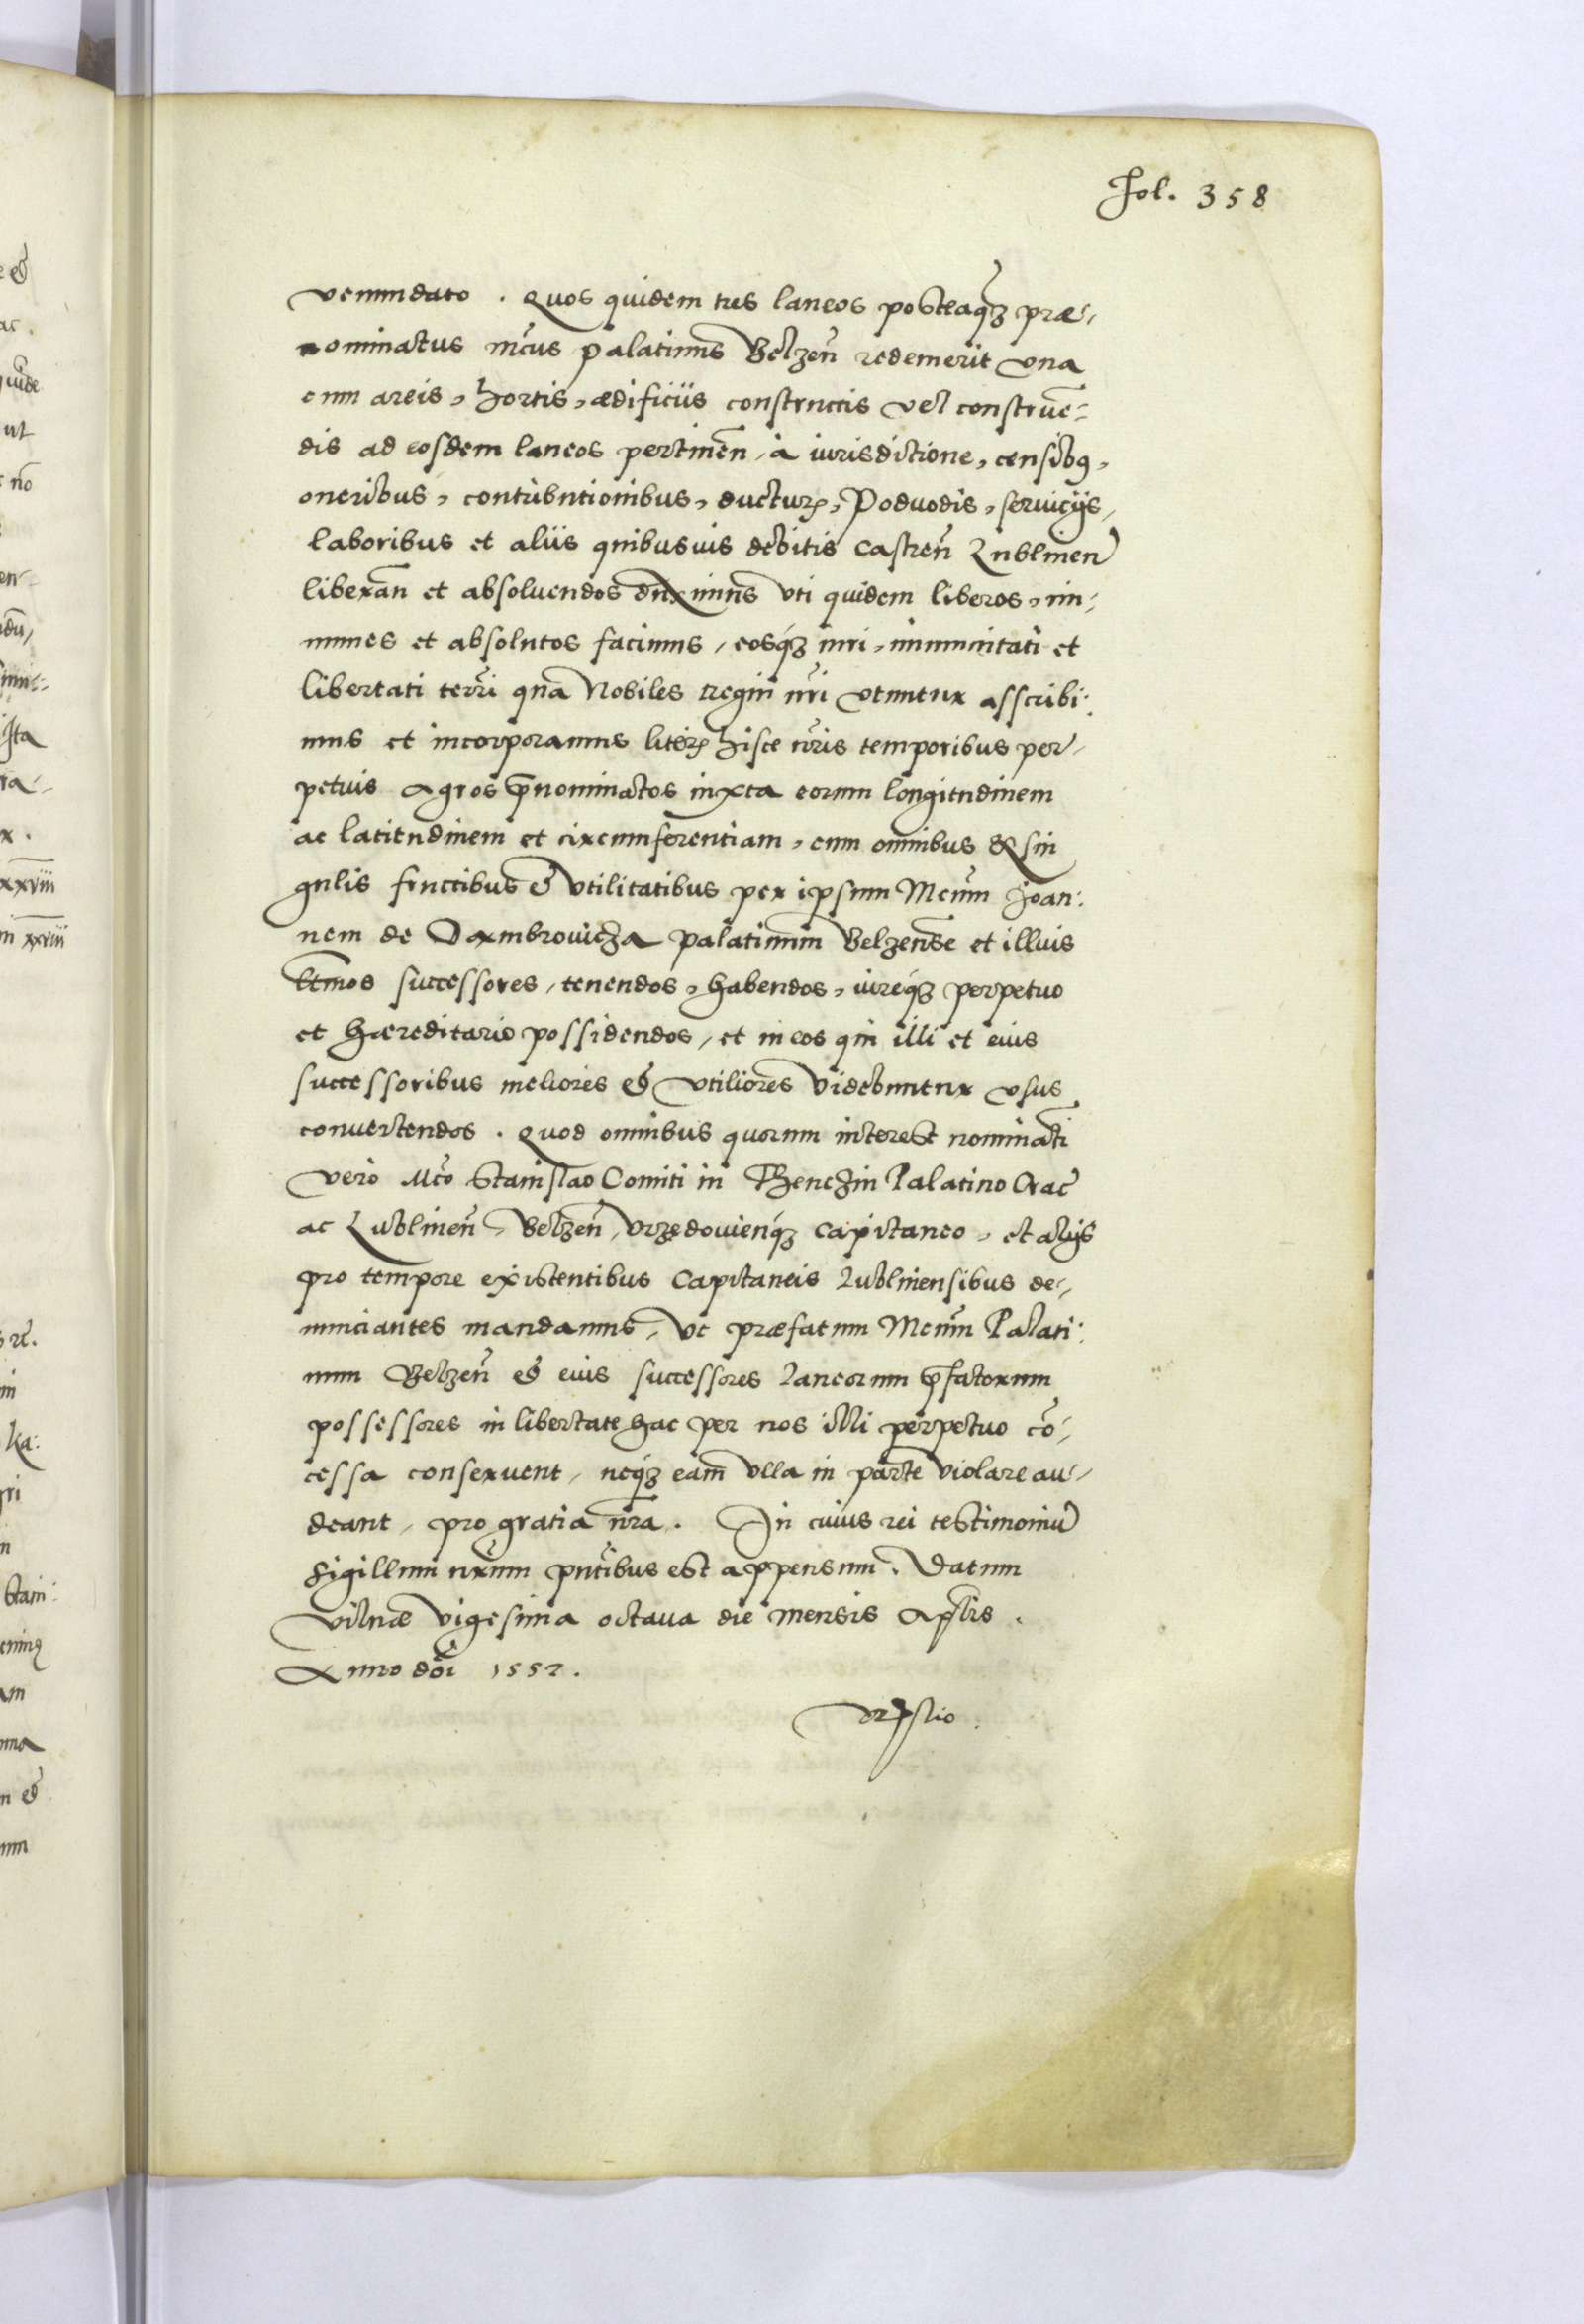 Fol. 358
venundato. Quos quidem tres laneos posteaqȝ præ-
nominatus mcus palatinus Belzen̄ redemerit vna
cum areis, hortis, ædificiis constructis vel construē-
dis ad eosdem laneos pertinen̄, à iurisdictione, censibꝰ,
oneribus, contributionibus, ducturꝭ, Podvodis, seruicijs,
laboribus et aliis quibusuis debitis castren̄ Lublinen̄
liberan̄ et absoluendos duximus vti quidem liberos, im-
munes et absolutos facimus, eosqȝ iuri, immunitati et
libertati terrī qua Nobiles regni nrī vtuntur asscribi:
mus et incorporamus literꝭ hisce nrīs temporibus per-
petuis Agros p̄nominatos iuxta eorum longitudinem
ac latitudinem et circumferentiam, cum omnibus & sin
gulis fructibus & vtilitatibus per ipsum Mcum Joan:
nem de Dambrouicza palatinum Belzensē et illius
ltimos successores, tenendos, habendos, iureqȝ perpetuo
et hæreditario possidendos, et in eos qui illi et eius
successoribus meliores & vtiliores videbuntur vsus
conuertendos. Quod omnibus quorum interest nominatī
vero Mco Stanislao Comiti in Thenczin Palatino Crac̄
ac Lublinen̄, Belzen̄, Vrzędouienqȝ capitaneo, et alijs
pro tempore existentibus Capitaneis Lublinensibus de-
nunciantes mandamus, vt præfatum Mcum Palati:
num Belzen̄ & eius successores Laneorum p̄fatorum
possessores in libertate hac per nos illi perpetuo cō-
cessa conseruent, neqȝ eam vlla in parte violare au-
deant, pro gratia nrā. In cuius rei testimoniū
sigillum nrūm pntībus est appensum. Datum
Vilnæ vigesima octaua die mensis Aplīs.
Anno doī 1552.